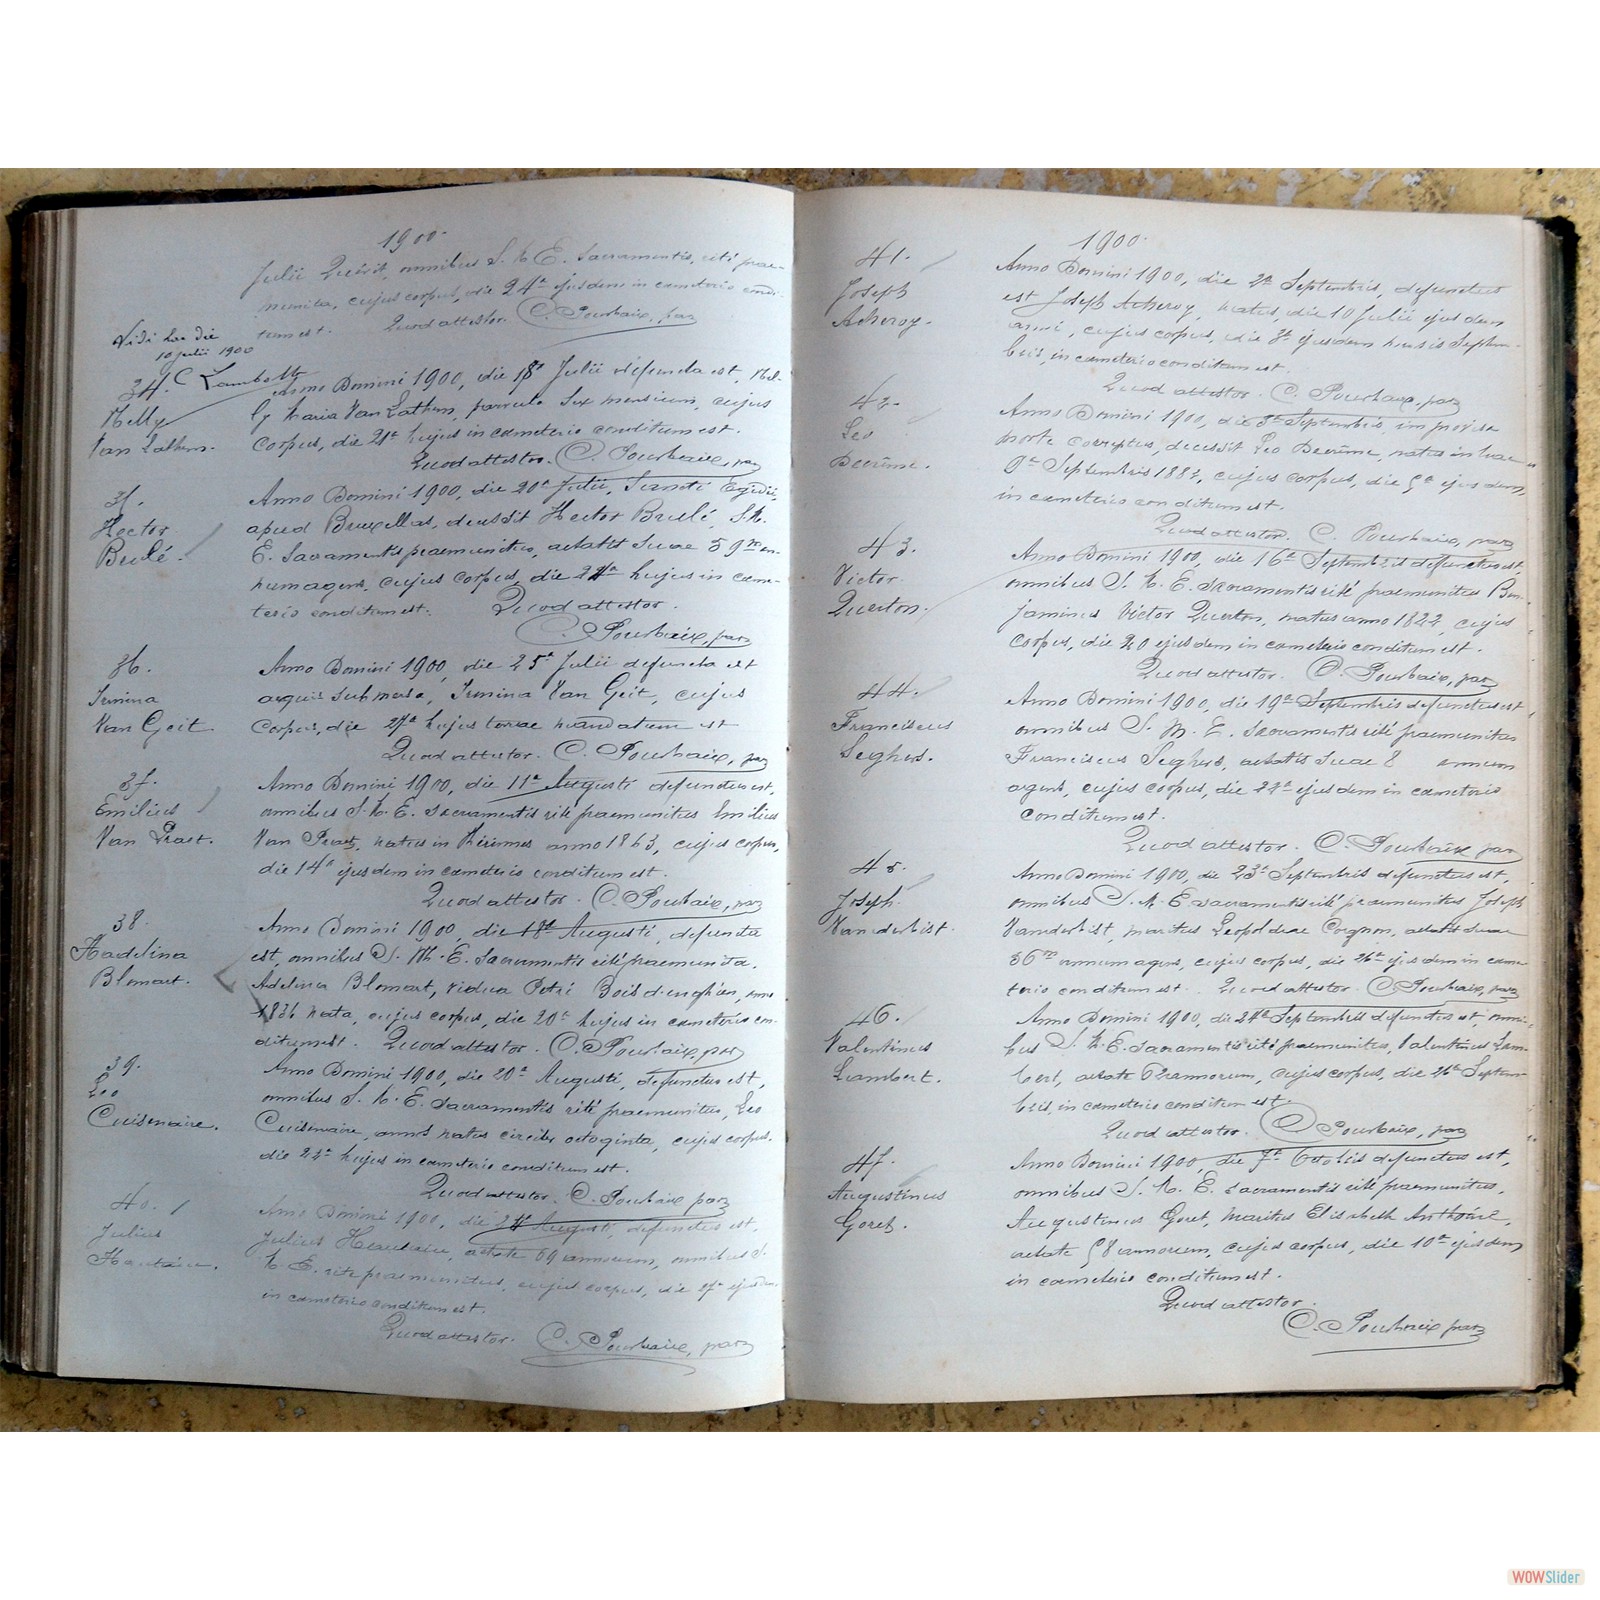 1900.
Julii Quévit, omnibus S. M. E. Sacramentis, rité prae-
munita, cujus corpus, die 24ª ejusdem in cemeterio condi-
tum est. Quod attestor. C. Pourbaix, par
Vidi hac die
10 julii 1900
C Lambotte
34.
Nelly
Van Lathem.
Anno Domini 1900, die 18ª Julii defuncta est, Nel-
ly Maria Van Lathem, parvula sex mensium, cujus
corpus, die 21ª hujus in cemeterio conditum est.
Quod attestor. C. Pourbaix, par
35.
Hector
Brulé.
Anno Domini 1900, die 20ª Julii, Sancti Egidii,
apud Bruxellas, decessit Hector Brulé, S. M.
E. Sacramentis praemunitus, aetatis suae 59m an-
num agens, cujus corpus, die 22ª hujus in ceme-
terio conditum est. Quod attestor.
C. Pourbaix, par
36.
Irmina
Van Geit
Anno Domini 1900, die 25ª Julii defuncta est
aquis submersa, Irmina Van Geit, cujus
corpus, die 27ª hujus terrae mandatum est
Quod attestor. C. Pourbaix, par
37.
Emilius
Van Praet.
Anno Domini 1900, die 11ª Augusti defunctus est,
omnibus S. M. E. Sacramentis rité praemunitus Emilius
Van Praet, natus in Hérinnes anno 1863, cujus corpus,
die 14ª ejusdem in cemeterio conditum est.
Quod attestor. C. Pourbaix, par
38.
Hadelina
Blomart.
Anno Domini 1900, die 18ª Augusti, defuncta
est, omnibus S. M. E. Sacramentis rité praemunita.
Adelina Blomart, vidua Petri Bois d'enghien, anno
1836 nata, cujus corpus, die 20ª hujus in cemeterio con-
ditum est. Quod attestor. C. Pourbaix, par
39.
Leo
Cuisenaire.
Anno Domini 1900, die 20ª Augusti, defunctus est,
omnibus S. M. E. Sacramentis rité praemunitus, Leo
Cuisenaire, annos natus circiter octoginta, cujus corpus,
die 22ª hujus in cemeterio conditum est.
Quod attestor. C. Pourbaix par
40.
Julius
Hautain.
Anno Domini 1900, die Augusti, defunctus est,
Julius Hautain, aetate 69 annorum, omnibus S.
M. E. rite praemunitus, cujus corpus, die 27ª ejusdem
in cemeterio conditum est.
Quod attestor. C. Pourbaix, par
1900.
41.
Joseph
Acheroy.
Anno Domini 1900, die 2ª Septembris, defunctus
est Joseph Acheroy, natus, die 10 Julii ejusdem
anni, cujus corpus, die 3ª ejusdem mensis Septem-
bris, in cemeterio conditum est.
Quod attestor. C. Pourbaix, par
42.
Leo
Decrême.
Anno Domini 1900, die 3ª Septembris, improvisa
morte correptus, decessit Leo Decrême, natus in hac
9ª Septembris 1883, cujus corpus, die 5ª ejusdem,
in cemeterio conditum est.
Quod attestor. C. Pourbaix, par
43.
Victor
Querton.
Anno Domini 1900, die 16ª Septembris defunctus est,
omnibus S. M. E. Sacramentis rité praemunitus Ben-
jaminus Victor Querton, natus anno 1822, cujus
corpus, die 20 ejusdem in cemeterio conditum est.
Quod attestor. C. Pourbaix, par
44.
Franciscus
Seghers.
Anno Domini 1900, die 19ª Septembris defunctus est
omnibus S. M. E. Sacramentis rité praemunitus
Franciscus Seghers, aetatis suae 8 annum
agens, cujus corpus, die 22ª ejusdem in cemeterio
conditum est.
Quod attestor. C. Pourbaix par
45.
Joseph
Vanderbist.
Anno Domini 1900, die 23ª Septembris defunctus est,
omnibus S. M. E. Sacramentis rité praemunitus Joseph
Vanderbist, maritus Leopoldinae Crignon, aetatis suae
36m annum agens, cujus corpus, die 26ª ejusdem in ceme-
terio conditum est. Quod attestor. C. Pourbaix, par
46.
Valentinus
Lambert.
Anno Domini 1900, die 24ª Septembris defunctus est, omni-
bus S. M. E. Sacramentis rité praemunitus, Valentinus Lam-
bert, aetate annorum, cujus corpus, die 26ª Septem-
bris, in cemeterio conditum est.
Quod attestor. C. Pourbaix, par
47.
Augustinus
Goret.
Anno Domini 1900, die 7ª Octobris defunctus est,
omnibus S. M. E. Sacramentis rité praemunitus,
Augustinus Goret, maritus Elisabeth Anthoine,
aetate 58 annorum, cujus corpus, die 10ª ejusdem
in cemeterio conditum est.
Quod attestor.
C. Pourbaix par
WOWSlider